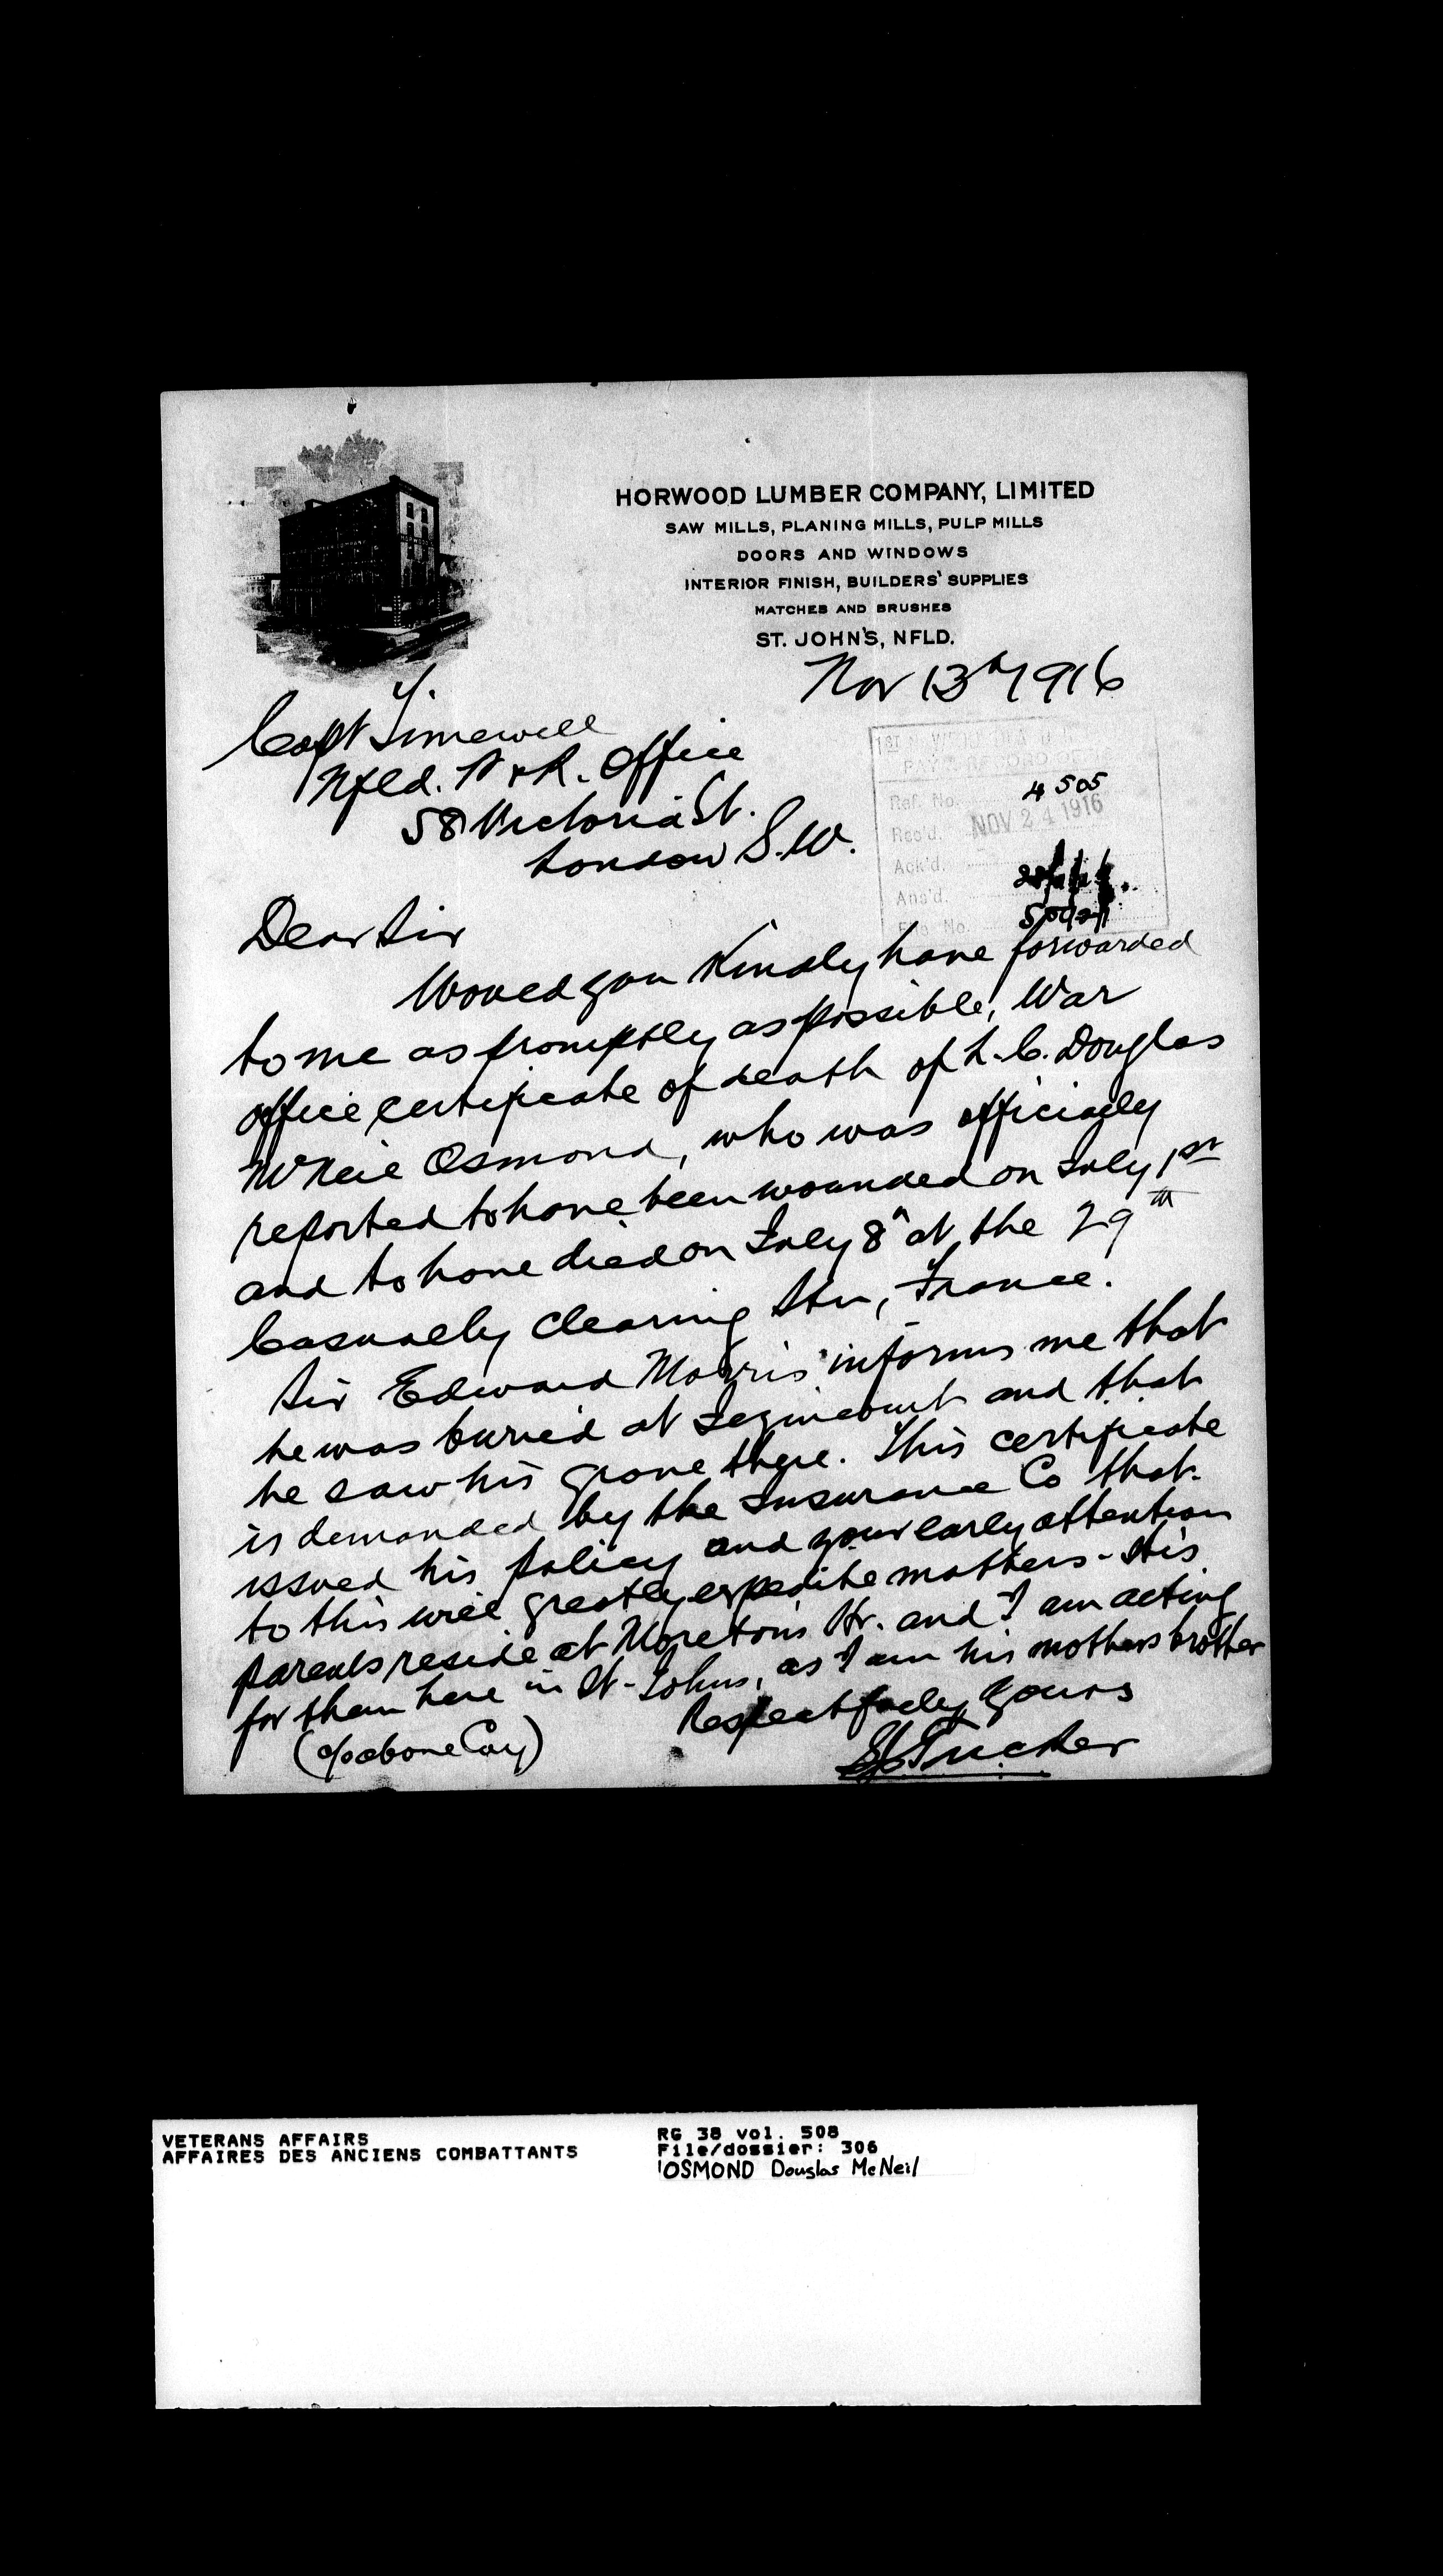 HORWOOD LUMBER COMPANY, LIMITED
SAW MILLS, PLANING MILLS, PULP MILLS
DOORS AND WINDOWS
INTERIOR FINISH, BUILDERS' SUPPLIES
MATCHES AND BRUSHES
ST. JOHN'S, NFLD.
Nov 13th 1916
Capt Timewell
Nfld. P & R. Office
58 Victoria St.
London S.W.
1ST NEWFOUNDLAND
PAY & RECORD OFFICE
Ref. No. 4505
Rec'd. NOV 24 1916
Ack'd.
Ans'd.
File No.
Dear Sir
Would you kindly have forwarded
to me as promptly as possible, War
office certificate of death of L.C. Douglas
McNeil Osmond, who was officially
reported to have been wounded on July 1st
and to have died on July 8th at the 29th
Casualty Clearing Stn, France.
Sir Edward Morris informs me that
he was buried at and that
he saw his grave there. This certificate
is demanded by the Insurance Co that
issued his policy and your early attention
to this will greatly expedite matters. His
parents reside at Moreton's Hr. and I am acting
for them here in St. Johns, as I am his mothers brother
Respectfully yours
(c/o above Coy)
Tucker
VETERANS AFFAIRS
AFFAIRES DES ANCIENS COMBATTANTS
RG 38 vol. 508
File/dossier: 306
OSMOND Douglas McNeil